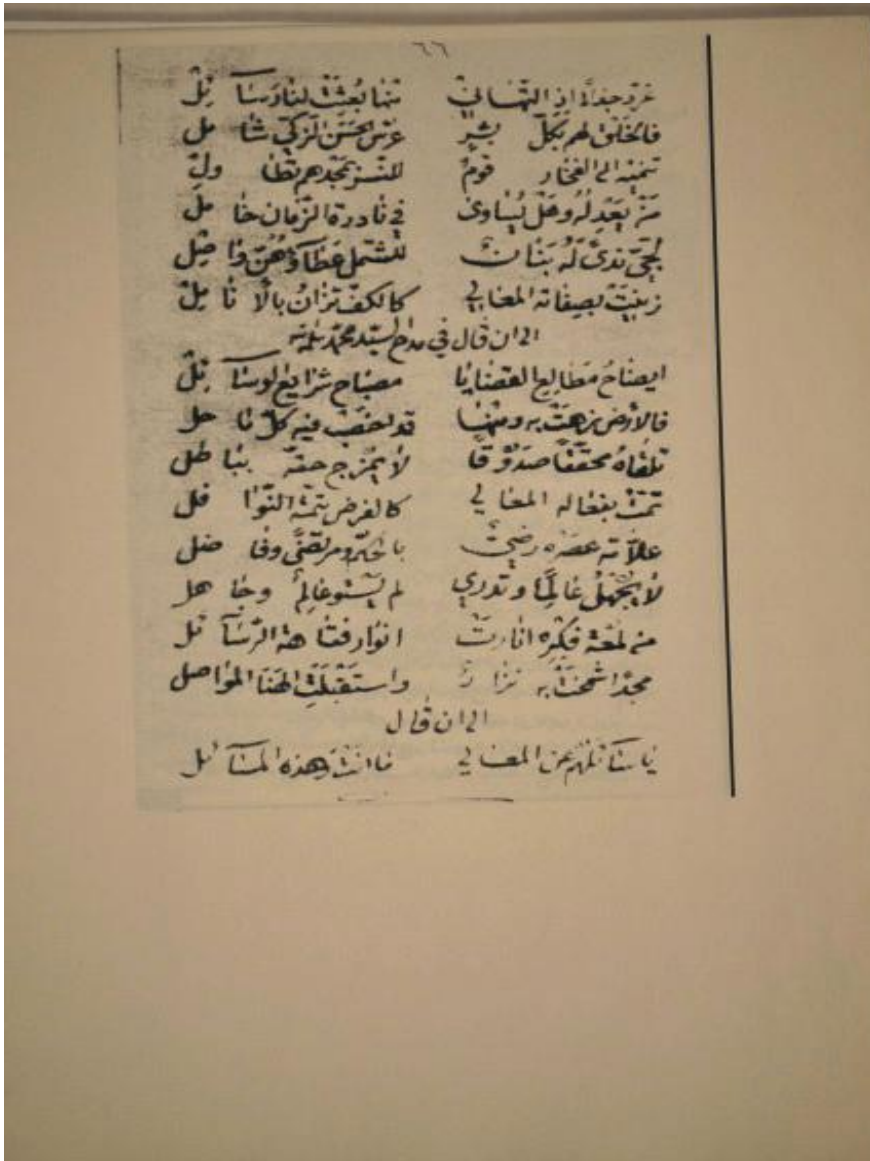 ٦٦
غرّد جذلاً اذ التهاني تنها بُعثت لنا وسائل
فالخلق لهم بكلّ بشرٍ عرس الحسن الزكيّ شامل
تنميه الى الفخار قومٌ للنسر بمجدهم تطاول
مَن يعدله وهل يُساوى في نادرة الزمان خامل
لجيّ ندىً له بنان للشمل عطاؤهنّ واصل
زينت بصفاته المعالي كالكفّ تزان بالانامل
الى ان قال في مدح السيد محمد سلمه
ايضاح مطالع القضايا مصباح شرايع الوسائل
فالارض زهت به ومنها قد اخصب فيه كلّ ماحل
تلقاه محققاً صدوقاً لا يمزج حقّه بباطل
تمّت بفعاله المعالي كالفرض تتمّه النوافل
علّامة عصره رضيّ بالحكم ومرتضى وفاضل
لا يجهل عالماً وتدري لم يستو عالم وجاهل
من لمعة فكره انارت انوار فقاهة الرسائل
مجداً شمخت به نزار واستقبلت الهنا المواصل
الى ان قال
يا سائلهم عن المعالي ما انت وهذه المسائل